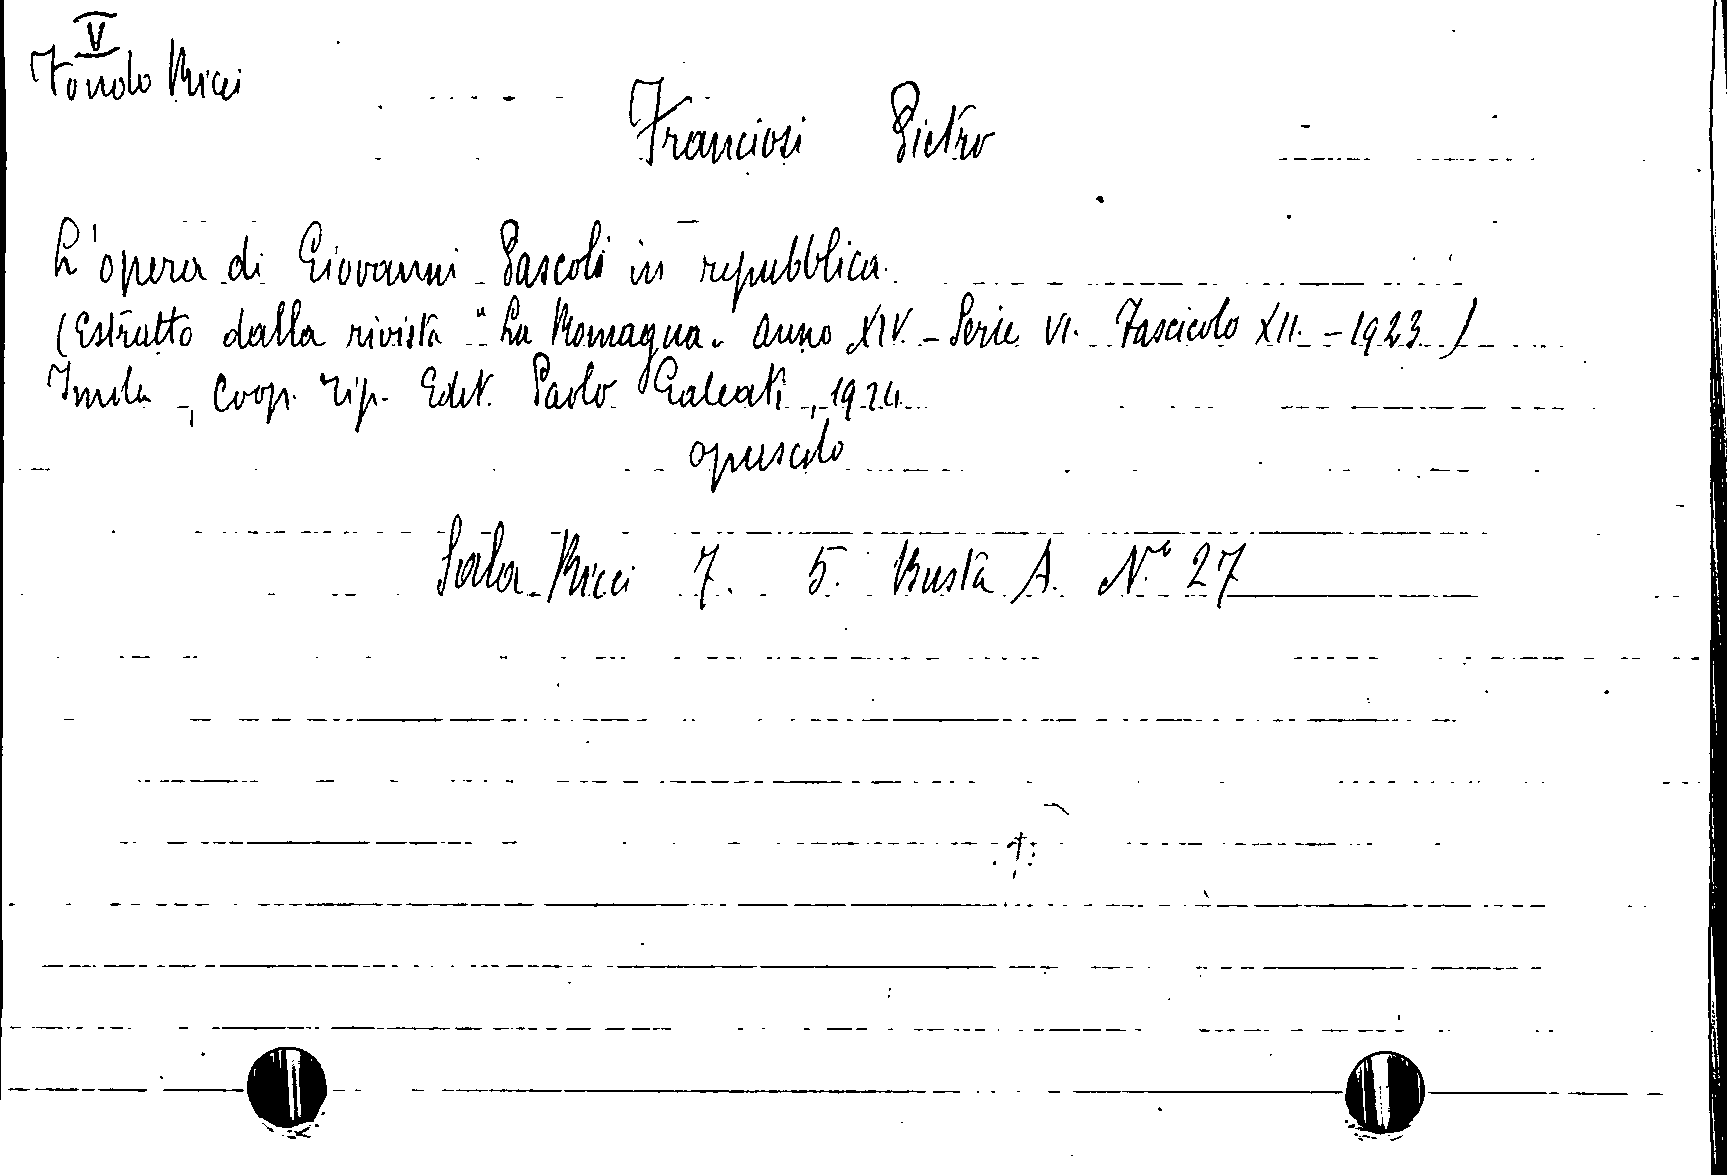 V
Fondo Ricci
Franciosi Pietro
L'opera di Giovanni Pascoli in repubblica.
(Estratto dalla rivista "La Romagna" anno XIV - Serie VI. Fascicolo XII. - 1923)
Imola -, Coop. Tip. Edit. Paolo Galeati, 1924
opuscolo
Sala Ricci 7. 5. Busta A. N° 27